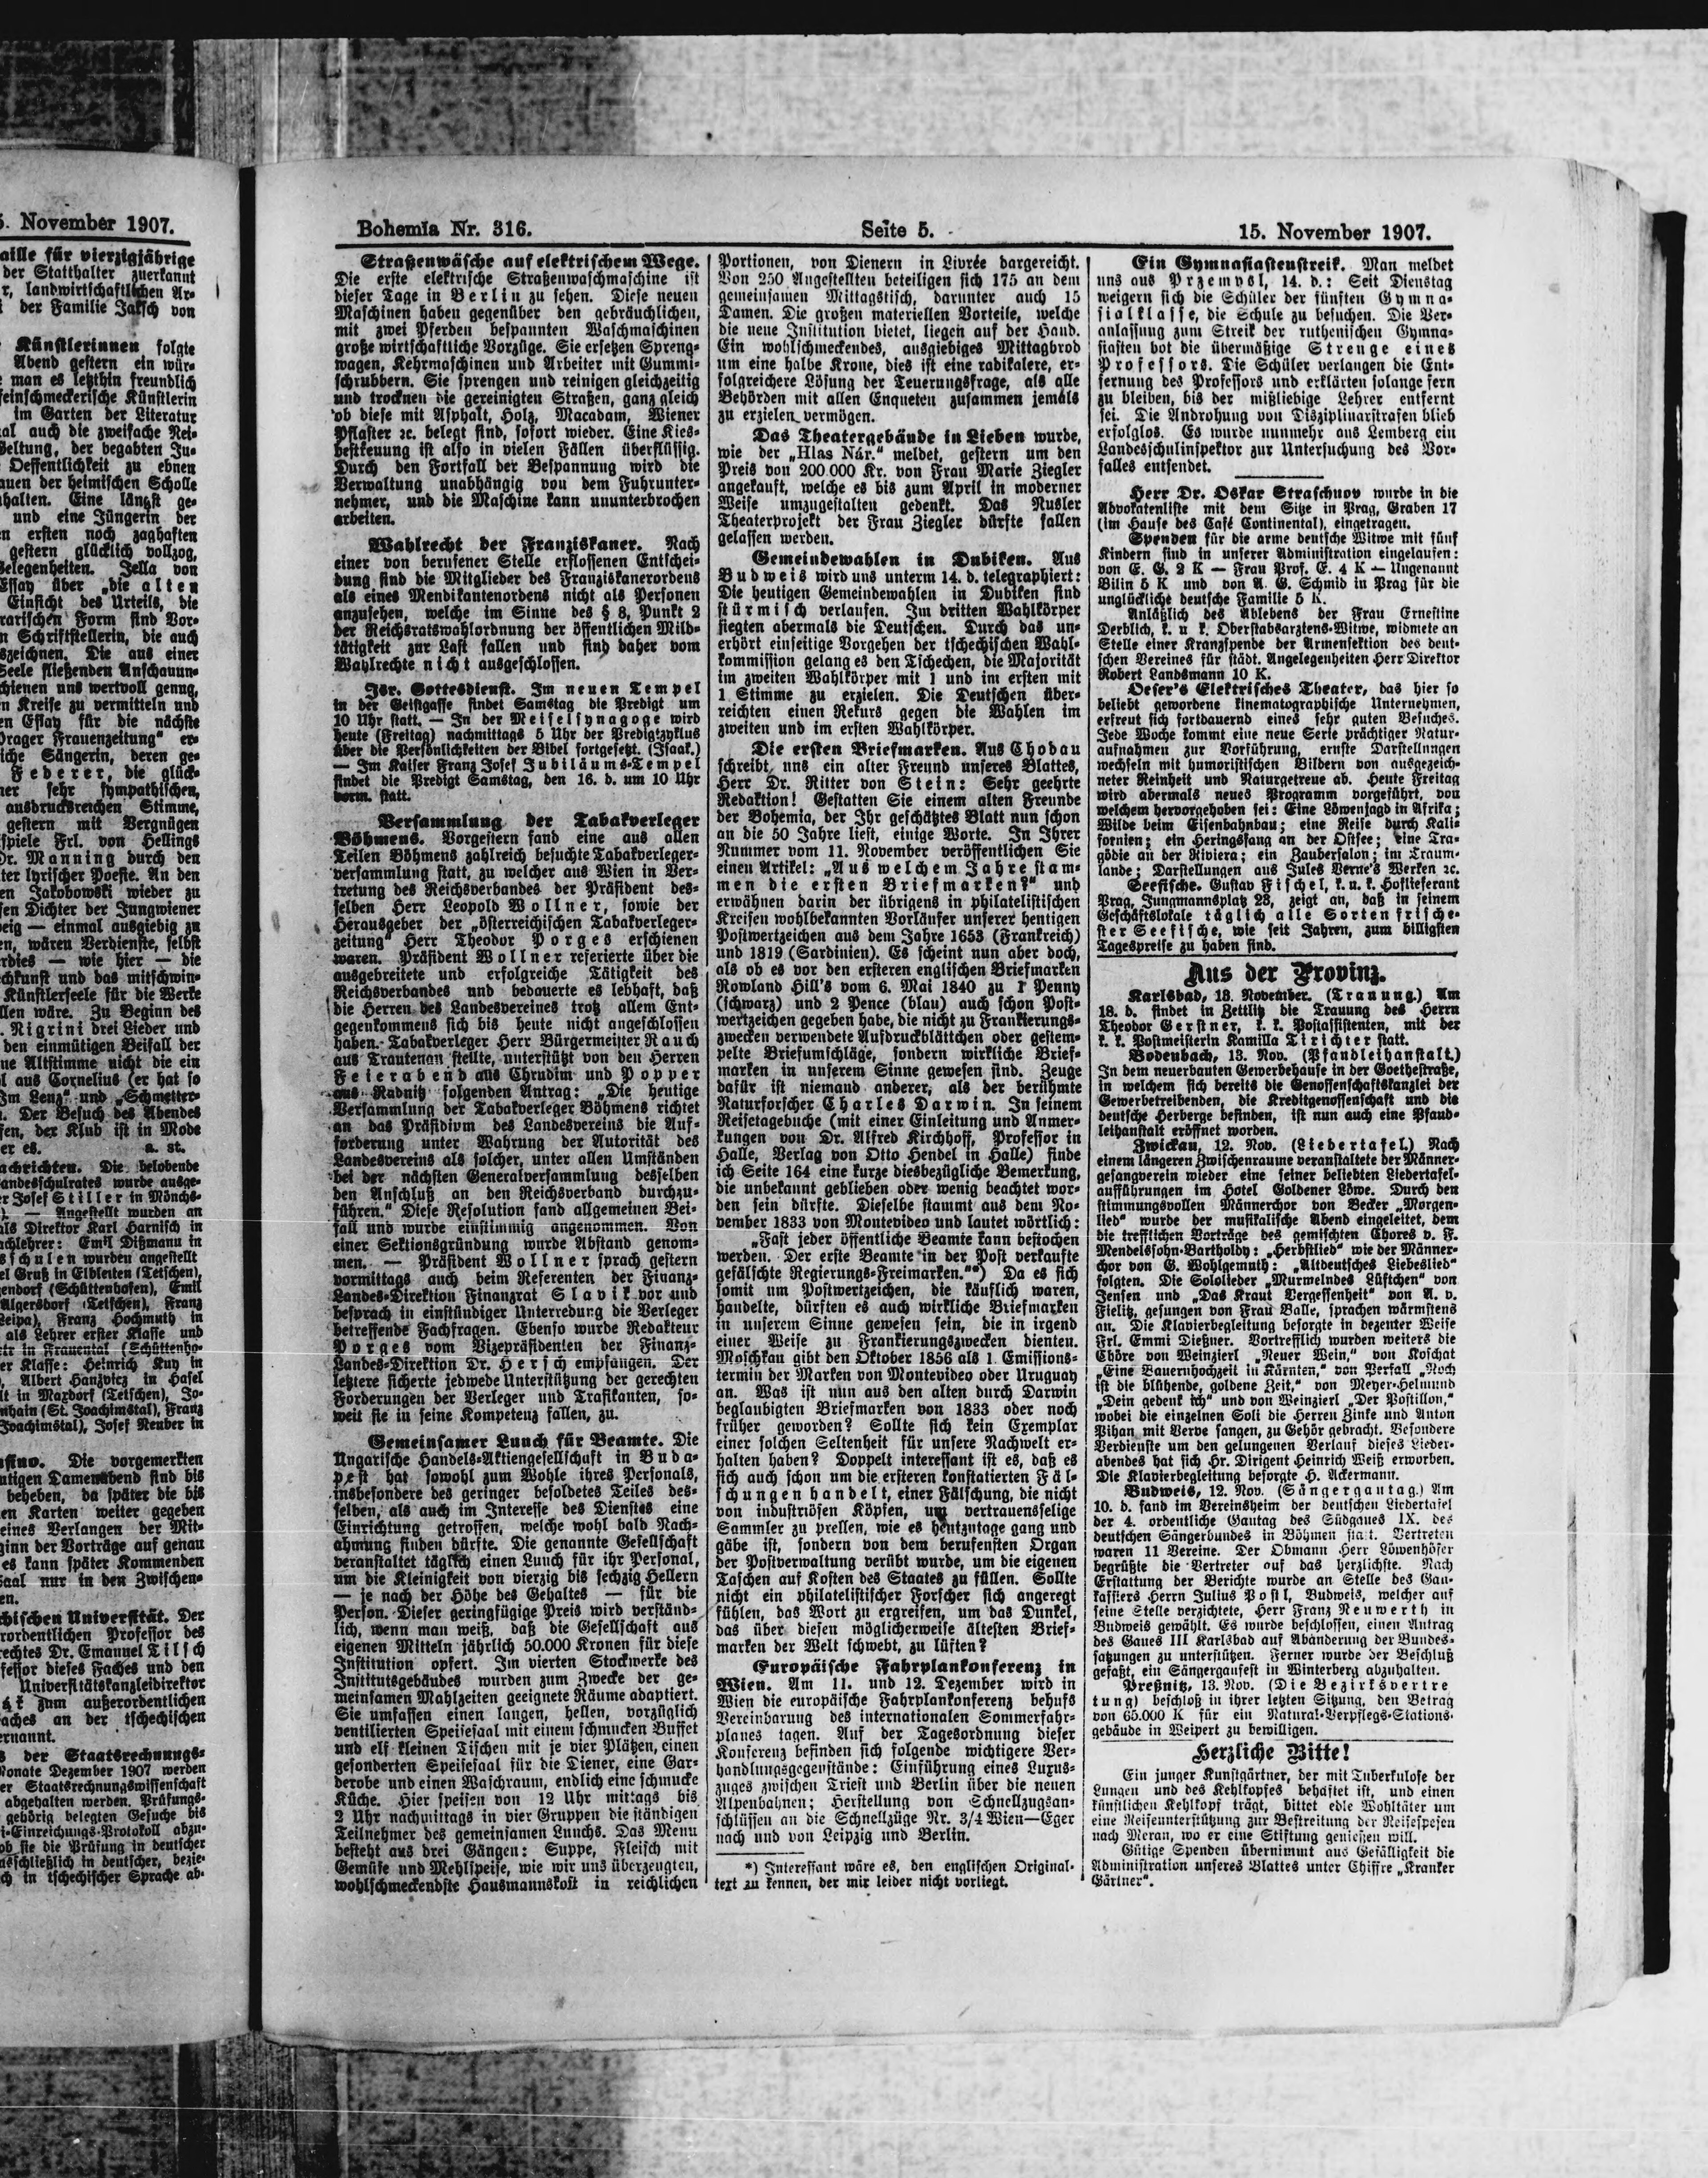 5. November 1907.
aille für vierzigjährige
der Statthalter zuerkannt
r, landwirtschaftlichen Ar-
der Familie Jaksch von
Künstlerinnen folgte
Abend gestern ein wür-
man es letzthin freundlich
feinschmeckerische Künstlerin
im Garten der Literatur
al auch die zweifache Nei-
Geltung, der begabten Ju-
Oeffentlichkeit zu ebnen
auen der heimischen Scholle
halten. Eine längst ge-
und eine Jüngerin der
n ersten noch zaghaften
gestern glücklich vollzog,
Gelegenheiten. Jella von
Essay über „die alten
Einsicht des Urteils, die
rarischen Form sind Vor-
n Schriftstellerin, die auch
szeichnen. Die aus einer
Seele fließenden Anschauun-
chienen uns wertvoll genug,
n Kreise zu vermitteln und
en Essay für die nächste
Prager Frauenzeitung“ er-
iche Sängerin, deren ge-
Federer, die glück-
ner sehr sympathischen,
ausdrucksreichen Stimme,
gestern mit Vergnügen
spiele Frl. von Hellings
Dr. Manning durch den
ter lyrischer Poesie. An den
en Jakobowski wieder zu
sen Dichter der Jungwiener
eig — einmal ausgiebig zu
en, wären Verdienste, selbst
rdies — wie hier — die
chkunst und das mitschwin-
Künstlerseele für die Werke
llen wäre. Zu Beginn des
. Nigrini drei Lieder und
den einmütigen Beifall der
ne Altstimme nicht die ein
l aus Cornelius (er hat so
Im Lenz“ und „Schmetter-
. Der Besuch des Abendes
sen, der Klub ist in Mode
er es. a. st.
achrichten. Die belobende
andesschulrates wurde ausge-
er Josef Stiller in Mönchs-
). — Angestellt wurden an
als Direktor Karl Harnisch in
achlehrer: Emil Dißmann in
sschulen wurden angestellt
el Gruß in Elbleiten (Tetschen),
endorf (Schüttenhofen), Emil
Algersdorf (Tetschen), Franz
Leipa), Franz Hochmuth in
als Lehrer erster Klasse und
in Frauental (Schüttenho-
er Klasse: Heinrich Kuy in
, Albert Hanzvicz in Hasel
lt in Maxdorf (Tetschen), Jo-
nhain (St. Joachimstal), Franz
Joachimstal), Josef Neuber in
sino. Die vorgemerkten
utigen Damenabend sind bis
beheben, da später die bis
en Karten weiter gegeben
eines Verlangen der Mit-
ginn der Vorträge auf genau
es kann später Kommenden
Saal nur in den Zwischen-
en.
chischen Universität. Der
rordentlichen Professor des
rechtes Dr. Emanuel Tilsch
fessor dieses Faches und den
Universitätskanzleidirektor
zum außerordentlichen
aches an der tschechischen
ernannt.
s der Staatsrechnungs-
Monate Dezember 1907 werden
er Staatsrechnungswissenschaft
abgehalten werden. Prüfungs-
gehörig belegten Gesuche bis
i-Einreichungs-Protokoll abzu-
ob sie die Prüfung in deutscher
ausschließlich in deutscher, bezie-
ch in tschechischer Sprache ab-
Bohemia Nr. 316. Seite 5. 15. November 1907.
Straßenwäsche auf elektrischem Wege.
Die erste elektrische Straßenwaschmaschine ist
dieser Tage in Berlin zu sehen. Diese neuen
Maschinen haben gegenüber den gebräuchlichen,
mit zwei Pferden bespannten Waschmaschinen
große wirtschaftliche Vorzüge. Sie ersetzen Spreng-
wagen, Kehrmaschinen und Arbeiter mit Gummi-
schrubbern. Sie sprengen und reinigen gleichzeitig
und trocknen die gereinigten Straßen, ganz gleich
ob diese mit Asphalt, Holz, Macadam, Wiener
Pflaster ꝛc. belegt sind, sofort wieder. Eine Kies-
bestreuung ist also in vielen Fällen überflüssig.
Durch den Fortfall der Bespannung wird die
Verwaltung unabhängig von dem Fuhrunter-
nehmer, und die Maschine kann ununterbrochen
arbeiten.
Wahlrecht der Franziskaner. Nach
einer von berufener Stelle erflossenen Entschei-
dung sind die Mitglieder des Franziskanerordens
als eines Mendikantenordens nicht als Personen
anzusehen, welche im Sinne des § 8, Punkt 2
der Reichsratswahlordnung der öffentlichen Mild-
tätigkeit zur Last fallen und sind daher vom
Wahlrechte nicht ausgeschlossen.
Isr. Gottesdienst. Im neuen Tempel
in der Geistgasse findet Samstag die Predigt um
10 Uhr statt. — In der Meiselsynagoge wird
heute (Freitag) nachmittags 5 Uhr der Predigtzyklus
über die Persönlichkeiten der Bibel fortgesetzt. (Isaak.)
— Im Kaiser Franz Josef Jubiläums-Tempel
findet die Predigt Samstag, den 16. d. um 10 Uhr
vorm. statt.
Versammlung der Tabakverleger
Böhmens. Vorgestern fand eine aus allen
Teilen Böhmens zahlreich besuchte Tabakverleger-
versammlung statt, zu welcher aus Wien in Ver-
tretung des Reichsverbandes der Präsident des-
selben Herr Leopold Wollner, sowie der
Herausgeber der „österreichischen Tabakverleger-
zeitung“ Herr Theodor Porges erschienen
waren. Präsident Wollner referierte über die
ausgebreitete und erfolgreiche Tätigkeit des
Reichsverbandes und bedauerte es lebhaft, daß
die Herren des Landesvereines trotz allem Ent-
gegenkommens sich bis heute nicht angeschlossen
haben. Tabakverleger Herr Bürgermeister Rauch
aus Trautenau stellte, unterstützt von den Herren
Feierabend aus Chrudim und Popper
aus Radnitz folgenden Antrag: „Die heutige
Versammlung der Tabakverleger Böhmens richtet
an das Präsidium des Landesvereins die Auf-
forderung unter Wahrung der Autorität des
Landesvereins als solcher, unter allen Umständen
bei der nächsten Generalversammlung desselben
den Anschluß an den Reichsverband durchzu-
führen.“ Diese Resolution fand allgemeinen Bei-
fall und wurde einstimmig angenommen. Von
einer Sektionsgründung wurde Abstand genom-
men. — Präsident Wollner sprach gestern
vormittags auch beim Referenten der Finanz-
Landes-Direktion Finanzrat Slavik vor und
besprach in einstündiger Unterredung die Verleger
betreffende Fachfragen. Ebenso wurde Redakteur
Porges vom Vizepräsidenten der Finanz-
Landes-Direktion Dr. Hersch empfangen. Der
letztere sicherte jedwede Unterstützung der gerechten
Forderungen der Verleger und Trafikanten, so-
weit sie in seine Kompetenz fallen, zu.
Gemeinsamer Lunch für Beamte. Die
Ungarische Handels-Aktiengesellschaft in Buda-
pest hat sowohl zum Wohle ihres Personals,
insbesondere des geringer besoldetes Teiles des-
selben, als auch im Interesse des Dienstes eine
Einrichtung getroffen, welche wohl bald Nach-
ahmung finden dürfte. Die genannte Gesellschaft
veranstaltet täglich einen Lunch für ihr Personal,
um die Kleinigkeit von vierzig bis sechzig Hellern
— je nach der Höhe des Gehaltes — für die
Person. Dieser geringfügige Preis wird verständ-
lich, wenn man weiß, daß die Gesellschaft aus
eigenen Mitteln jährlich 50.000 Kronen für diese
Institution opfert. Im vierten Stockwerke des
Institutsgebäudes wurden zum Zwecke der ge-
meinsamen Mahlzeiten geeignete Räume adaptiert.
Sie umfassen einen langen, hellen, vorzüglich
ventilierten Speisesaal mit einem schmucken Buffet
und elf kleinen Tischen mit je vier Plätzen, einen
gesonderten Speisesaal für die Diener, eine Gar-
derobe und einen Waschraum, endlich eine schmucke
Küche. Hier speisen von 12 Uhr mittags bis
2 Uhr nachmittags in vier Gruppen die ständigen
Teilnehmer des gemeinsamen Lunchs. Das Menu
besteht aus drei Gängen: Suppe, Fleisch mit
Gemüse und Mehlspeise, wie wir uns überzeugten,
wohlschmeckendste Hausmannskost in reichlichen
Portionen, von Dienern in Livrée dargereicht.
Von 250 Angestellten beteiligen sich 175 an dem
gemeinsamen Mittagstisch, darunter auch 15
Damen. Die großen materiellen Vorteile, welche
die neue Institution bietet, liegen auf der Hand.
Ein wohlschmeckendes, ausgiebiges Mittagbrod
um eine halbe Krone, dies ist eine radikalere, er-
folgreichere Lösung der Teuerungsfrage, als alle
Behörden mit allen Enqueten zusammen jemals
zu erzielen vermögen.
Das Theatergebäude in Lieben wurde,
wie der „Hlas Nár.“ meldet, gestern um den
Preis von 200.000 Kr. von Frau Marie Ziegler
angekauft, welche es bis zum April in moderner
Weise umzugestalten gedenkt. Das Nusler
Theaterprojekt der Frau Ziegler dürfte fallen
gelassen werden.
Gemeindewahlen in Dubiken. Aus
Budweis wird uns unterm 14. d. telegraphiert:
Die heutigen Gemeindewahlen in Dubiken sind
stürmisch verlaufen. Im dritten Wahlkörper
siegten abermals die Deutschen. Durch das un-
erhört einseitige Vorgehen der tschechischen Wahl-
kommission gelang es den Tschechen, die Majorität
im zweiten Wahlkörper mit 1 und im ersten mit
1 Stimme zu erzielen. Die Deutschen über-
reichten einen Rekurs gegen die Wahlen im
zweiten und im ersten Wahlkörper.
Die ersten Briefmarken. Aus Chodau
schreibt uns ein alter Freund unseres Blattes,
Herr Dr. Ritter von Stein: Sehr geehrte
Redaktion! Gestatten Sie einem alten Freunde
der Bohemia, der Ihr geschätztes Blatt nun schon
an die 50 Jahre liest, einige Worte. In Ihrer
Nummer vom 11. November veröffentlichen Sie
einen Artikel: „Aus welchem Jahre stam-
men die ersten Briefmarken?“ und
erwähnen darin der übrigens in philatelistischen
Kreisen wohlbekannten Vorläufer unserer heutigen
Postwertzeichen aus dem Jahre 1653 (Frankreich)
und 1819 (Sardinien). Es scheint nun aber doch,
als ob es vor den ersteren englischen Briefmarken
Rowland Hill's vom 6. Mai 1840 zu 1 Penny
(schwarz) und 2 Pence (blau) auch schon Post-
wertzeichen gegeben habe, die nicht zu Frankierungs-
zwecken verwendete Aufdruckblättchen oder gestem-
pelte Briefumschläge, sondern wirkliche Brief-
marken in unserem Sinne gewesen sind. Zeuge
dafür ist niemand anderer, als der berühmte
Naturforscher Charles Darwin. In seinem
Reisetagebuche (mit einer Einleitung und Anmer-
kungen von Dr. Alfred Kirchhoff, Professor in
Halle, Verlag von Otto Hendel in Halle) finde
ich Seite 164 eine kurze diesbezügliche Bemerkung,
die unbekannt geblieben oder wenig beachtet wor-
den sein dürfte. Dieselbe stammt aus dem No-
vember 1833 von Montevideo und lautet wörtlich:
„Fast jeder öffentliche Beamte kann bestochen
werden. Der erste Beamte in der Post verkaufte
gefälschte Regierungs-Freimarken.“*) Da es sich
somit um Postwertzeichen, die käuflich waren,
handelte, dürften es auch wirkliche Briefmarken
in unserem Sinne gewesen sein, die in irgend
einer Weise zu Frankierungszwecken dienten.
Moschkau gibt den Oktober 1856 als 1. Emissions-
termin der Marken von Montevideo oder Uruguay
an. Was ist nun aus den alten durch Darwin
beglaubigten Briefmarken von 1833 oder noch
früher geworden? Sollte sich kein Exemplar
einer solchen Seltenheit für unsere Nachwelt er-
halten haben? Doppelt interessant ist es, daß es
sich auch schon um die ersteren konstatierten Fäl-
schungen handelt, einer Fälschung, die nicht
von industriösen Köpfen, um vertrauensselige
Sammler zu prellen, wie es heutzutage gang und
gäbe ist, sondern von dem berufensten Organ
der Postverwaltung verübt wurde, um die eigenen
Taschen auf Kosten des Staates zu füllen. Sollte
nicht ein philatelistischer Forscher sich angeregt
fühlen, das Wort zu ergreifen, um das Dunkel,
das über diesen möglicherweise ältesten Brief-
marken der Welt schwebt, zu lüften?
Europäische Fahrplankonferenz in
Wien. Am 11. und 12. Dezember wird in
Wien die europäische Fahrplankonferenz behufs
Vereinbarung des internationalen Sommerfahr-
planes tagen. Auf der Tagesordnung dieser
Konferenz befinden sich folgende wichtigere Ver-
handlungsgegenstände: Einführung eines Luxus-
zuges zwischen Triest und Berlin über die neuen
Alpenbahnen; Herstellung von Schnellzugsan-
schlüssen an die Schnellzüge Nr. 3/4 Wien—Eger
nach und von Leipzig und Berlin.
*) Interessant wäre es, den englischen Original-
text zu kennen, der mir leider nicht vorliegt.
Ein Gymnasiastenstreik. Man meldet
uns aus Przemysl, 14. d.: Seit Dienstag
weigern sich die Schüler der fünften Gymna-
sialklasse, die Schule zu besuchen. Die Ver-
anlassung zum Streik der ruthenischen Gymna-
siasten bot die übermäßige Strenge eines
Professors. Die Schüler verlangen die Ent-
fernung des Professors und erklärten solange fern
zu bleiben, bis der mißliebige Lehrer entfernt
sei. Die Androhung von Disziplinarstrafen blieb
erfolglos. Es wurde nunmehr aus Lemberg ein
Landesschulinspektor zur Untersuchung des Vor-
falles entsendet.
Herr Dr. Oskar Straschnov wurde in die
Advokatenliste mit dem Sitze in Prag, Graben 17
(im Hause des Café Continental), eingetragen.
Spenden für die arme deutsche Witwe mit fünf
Kindern sind in unserer Administration eingelaufen:
von E. G. 2 K — Frau Prof. E. 4 K — Ungenannt
Bilin 5 K und von A. G. Schmid in Prag für die
unglückliche deutsche Familie 5 K.
Anläßlich des Ablebens der Frau Ernestine
Derblich, k. u. k. Oberstabsarztens-Witwe, widmete an
Stelle einer Kranzspende der Armensektion des deut-
schen Vereines für städt. Angelegenheiten Herr Direktor
Robert Landsmann 10 K.
Oeser's Elektrisches Theater, das hier so
beliebt gewordene kinematographische Unternehmen,
erfreut sich fortdauernd eines sehr guten Besuches.
Jede Woche kommt eine neue Serie prächtiger Natur-
aufnahmen zur Vorführung, ernste Darstellungen
wechseln mit humoristischen Bildern von ausgezeich-
neter Reinheit und Naturgetreue ab. Heute Freitag
wird abermals neues Programm vorgeführt, von
welchem hervorgehoben sei: Eine Löwenjagd in Afrika;
Wilde beim Eisenbahnbau; eine Reise durch Kali-
fornien; ein Heringsfang an der Ostsee; eine Tra-
gödie an der Riviera; ein Zaubersalon; im Traum-
lande; Darstellungen aus Jules Verne's Werken ꝛc.
Seefische. Gustav Fischel, k. u. k. Hoflieferant
Prag, Jungmannsplatz 23, zeigt an, daß in seinem
Geschäftslokale täglich alle Sorten frische-
ster Seefische, wie seit Jahren, zum billigsten
Tagespreise zu haben sind.
Aus der Provinz.
Karlsbad, 13. November. (Trauung.) Am
18. d. findet in Zettlitz die Trauung des Herrn
Theodor Gerstner, k. k. Postassistenten, mit der
k. k. Postmeisterin Kamilla Tirichter statt.
Bodenbach, 13. Nov. (Pfandleihanstalt.)
In dem neuerbauten Gewerbehause in der Goethestraße,
in welchem sich bereits die Genossenschaftskanzlei der
Gewerbetreibenden, die Kreditgenossenschaft und die
deutsche Herberge befinden, ist nun auch eine Pfand-
leihanstalt eröffnet worden.
Zwickau, 12. Nov. (Liedertafel.) Nach
einem längeren Zwischenraume veranstaltete der Männer-
gesangverein wieder eine seiner beliebten Liedertafel-
aufführungen im Hotel Goldener Löwe. Durch den
stimmungsvollen Männerchor von Becker „Morgen-
lied“ wurde der musikalische Abend eingeleitet, dem
die trefflichen Vorträge des gemischten Chores v. F.
Mendelssohn-Bartholdy: „Herbstlied“ wie der Männer-
chor von G. Wohlgemuth: „Altdeutsches Liebeslied“
folgten. Die Sololieder „Murmelndes Lüftchen“ von
Jensen und „Das Kraut Vergessenheit“ von A. v.
Fielitz, gesungen von Frau Balle, sprachen wärmstens
an. Die Klavierbegleitung besorgte in dezenter Weise
Frl. Emmi Dießner. Vortrefflich wurden weiters die
Chöre von Weinzierl „Neuer Wein,“ von Koschat
„Eine Bauernhochzeit in Kärnten,“ von Perfall „Noch
ist die blühende, goldene Zeit,“ von Meyer-Helmund
„Dein gedenk ich“ und von Weinzierl „Der Postillon,“
wobei die einzelnen Soli die Herren Zinke und Anton
Pihan mit Verve sangen, zu Gehör gebracht. Besondere
Verdienste um den gelungenen Verlauf dieses Lieder-
abendes hat sich Hr. Dirigent Heinrich Weiß erworben.
Die Klavierbegleitung besorgte H. Ackermann.
Budweis, 12. Nov. (Sängergautag.) Am
10. d. fand im Vereinsheim der deutschen Liedertafel
der 4. ordentliche Gautag des Südgaues IX. des
deutschen Sängerbundes in Böhmen statt. Vertreten
waren 11 Vereine. Der Obmann Herr Löwenhöfer
begrüßte die Vertreter auf das herzlichste. Nach
Erstattung der Berichte wurde an Stelle des Gau-
kassiers Herrn Julius Postl, Budweis, welcher auf
seine Stelle verzichtete, Herr Franz Neuwerth in
Budweis gewählt. Es wurde beschlossen, einen Antrag
des Gaues III Karlsbad auf Abänderung der Bundes-
satzungen zu unterstützen. Ferner wurde der Beschluß
gefaßt, ein Sängergaufest in Winterberg abzuhalten.
Preßnitz, 13. Nov. (Die Bezirksvertre
tung) beschloß in ihrer letzten Sitzung, den Betrag
von 65.000 K für ein Natural-Verpflegs-Stations-
gebäude in Weipert zu bewilligen.
Herzliche Bitte!
Ein junger Kunstgärtner, der mit Tuberkulose der
Lungen und des Kehlkopfes behaftet ist, und einen
künstlichen Kehlkopf trägt, bittet edle Wohltäter um
eine Reiseunterstützung zur Bestreitung der Reisespesen
nach Meran, wo er eine Stiftung genießen will.
Gütige Spenden übernimmt aus Gefälligkeit die
Administration unseres Blattes unter Chiffre „Kranker
Gärtner“.